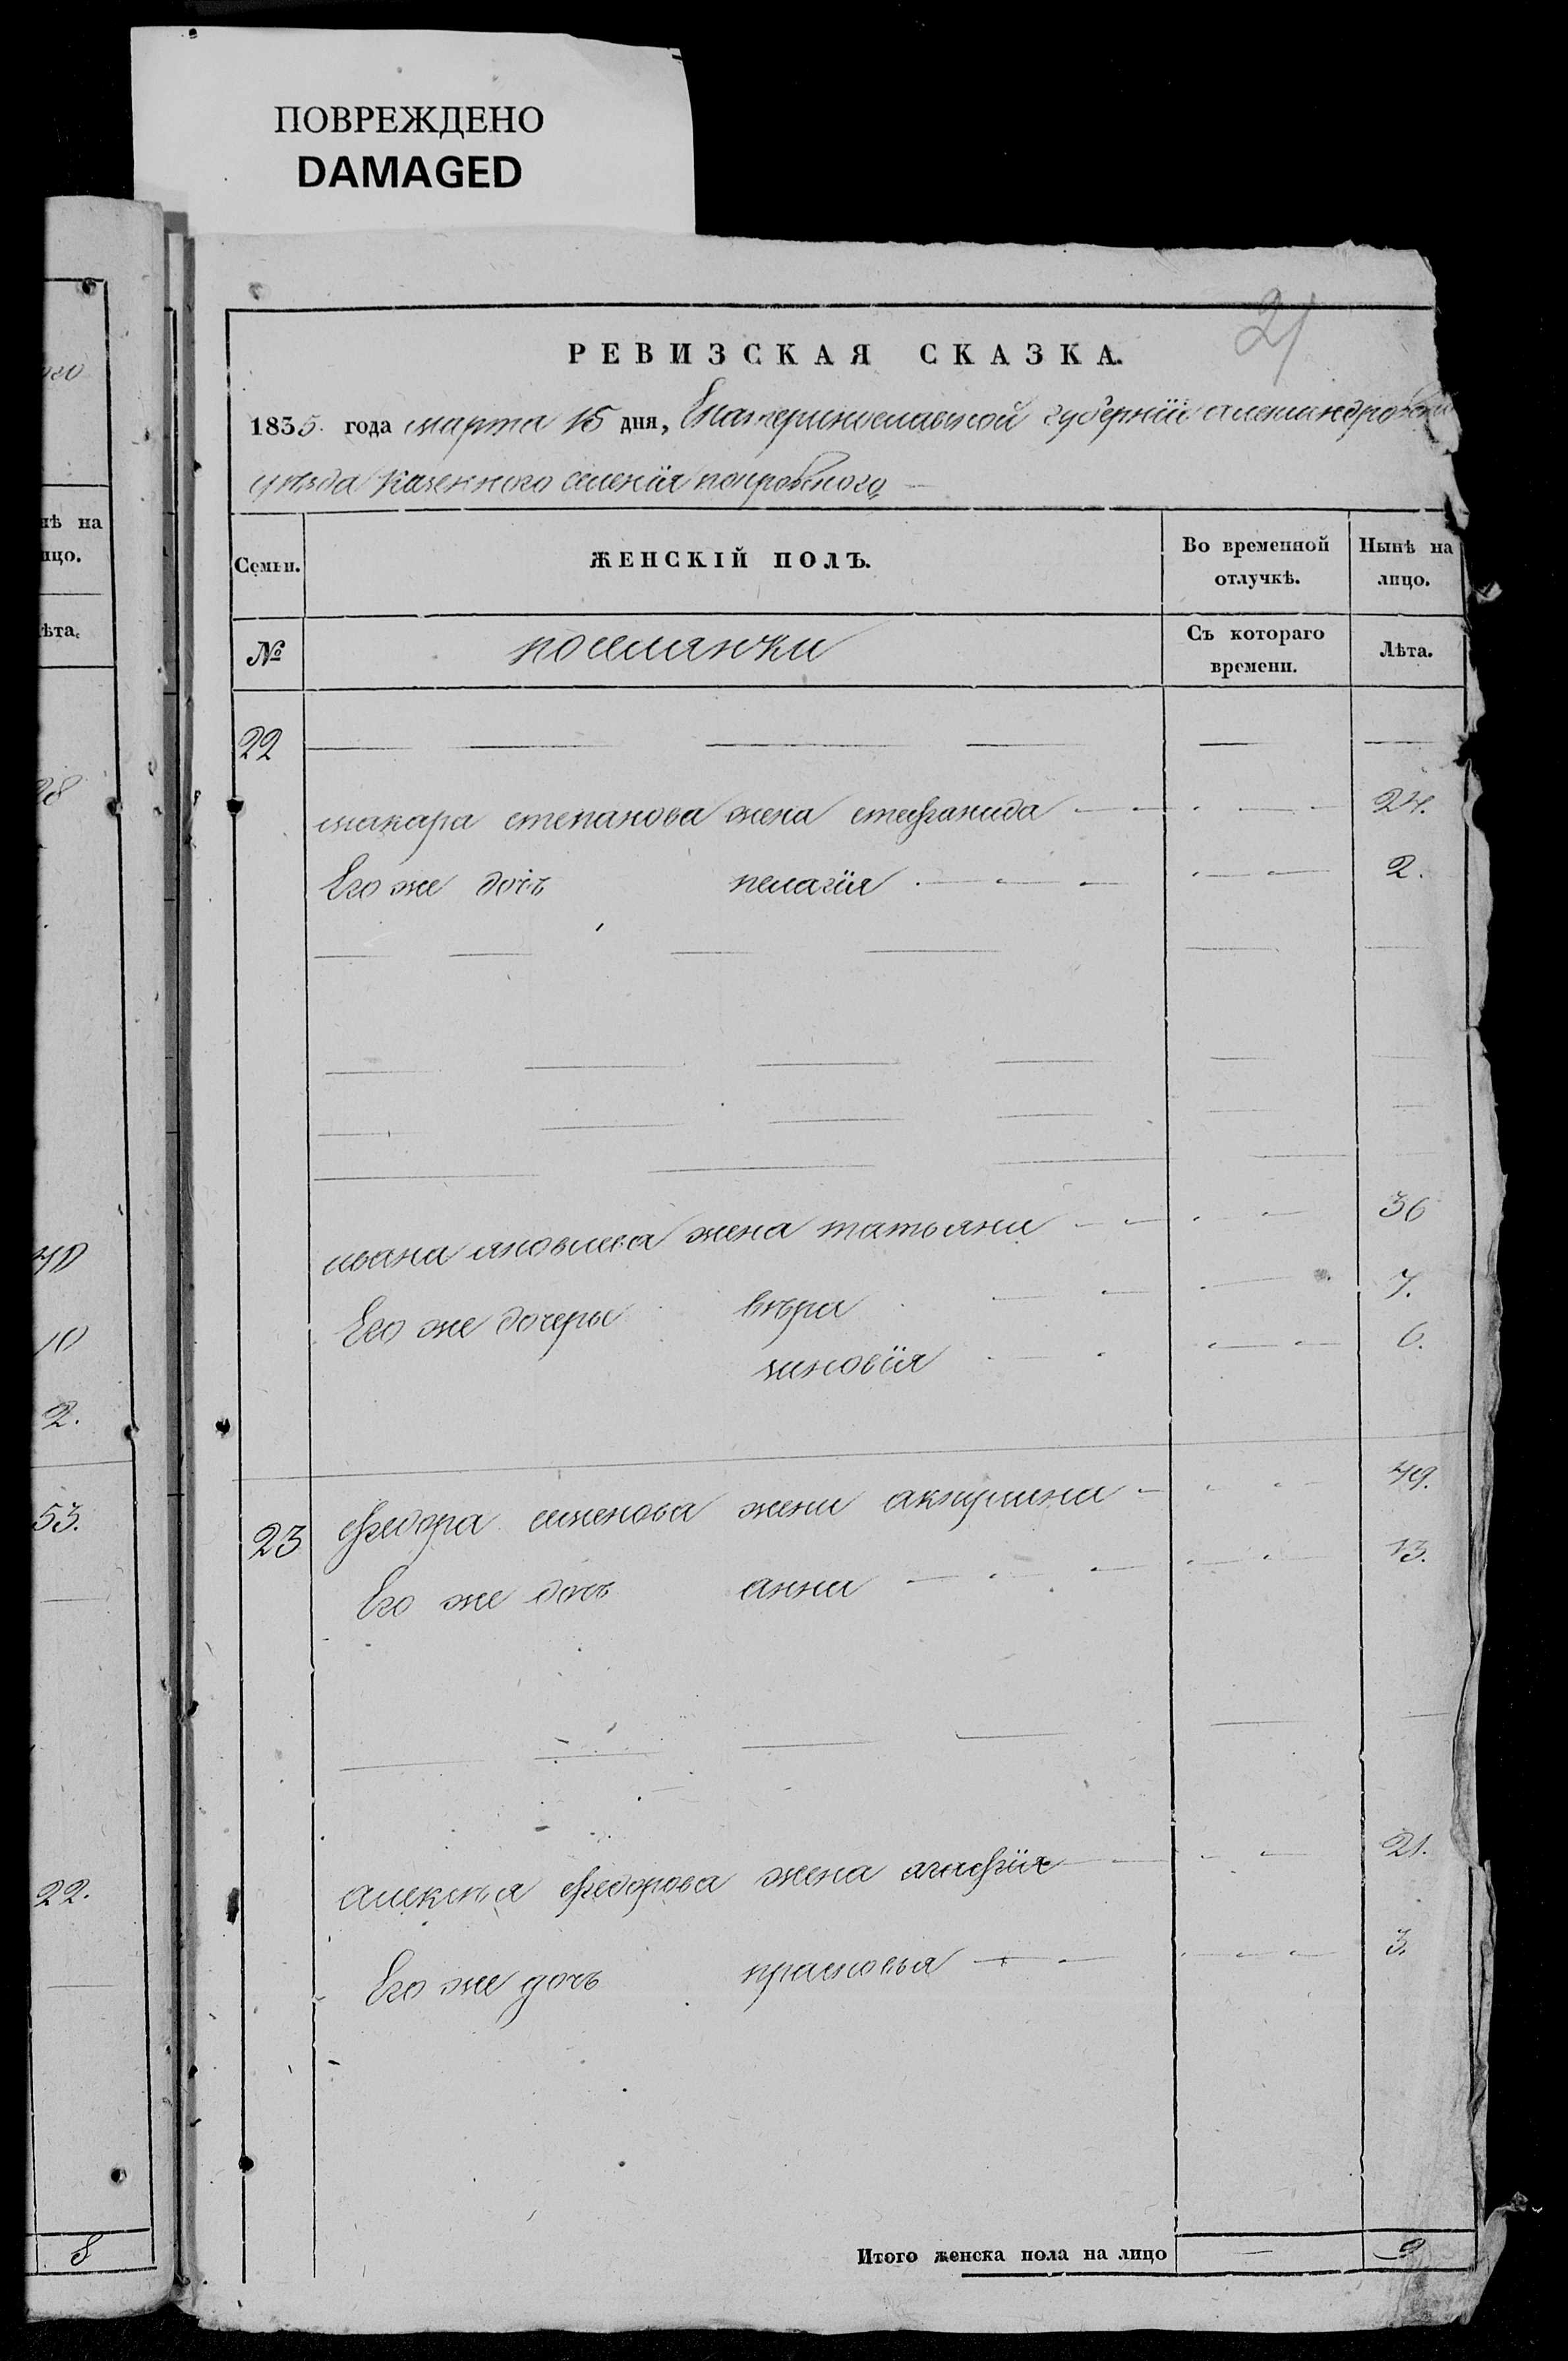 ПОВРЕЖДЕНО
DAMAGED
21
РЕВИЗСКАЯ СКАЗКА.
1835 года марта 15 дня, Екатеринославской губернiи александровскаго
уѣзда казенного селенiя покровского
Семьи.
ЖЕНСКIЙ ПОЛЪ.
Во временной отлучкѣ.
Нынѣ на лицо.
№
поселянки
Съ котораго времени.
Лѣта.
22
макара степанова жена стефанида 24.
Его же дочь пелагiя 2.
ивана яковлева жена татьяна 36
Его же дочеры вѣра 7.
зиновiя 6.
23 федора семенова жена акпулина 49.
Его же дочь анна 13.
алексѣя федорова жена агафiя 21.
Его же дочь прасковья 3.
Итого женска пола на лицо — 9
нѣ на
ицо.
ѣта.
28
40
10
2.
53.
22.
8